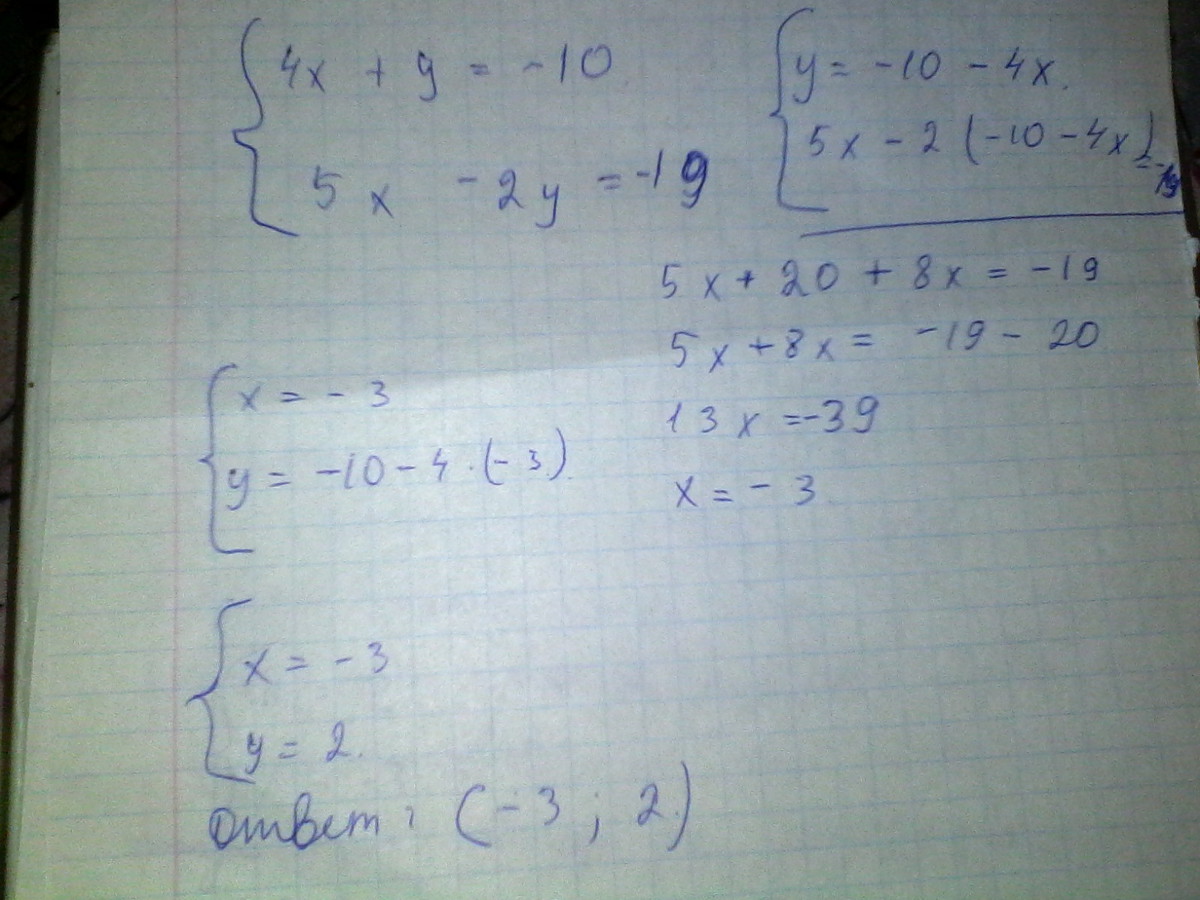 4x + y = -10
5x - 2y = -19
y = -10 - 4x.
5x - 2(-10 - 4x) = -19
5x + 20 + 8x = -19
5x + 8x = -19 - 20
13x = -39
x = -3
x = -3
y = -10 - 4 · (-3)
x = -3
y = 2.
ответ: (-3; 2)